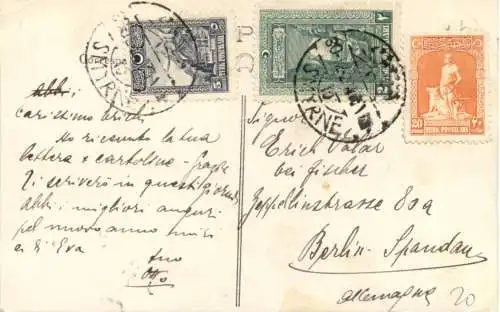 SMYRNE
SMYRNE
20 20
Abbi:
carissimo Erich
Ho ricevuto la tua
lettera e cartoline - grazie
Ti scriverò in questi giorni,
abbi i migliori auguri
pel nuovo anno miei
e di Eva
tuo
Otto
Signor
Erich
bei Fischer
Zeppelinstrasse 80a
Berlin-Spandau
Allemagna
20